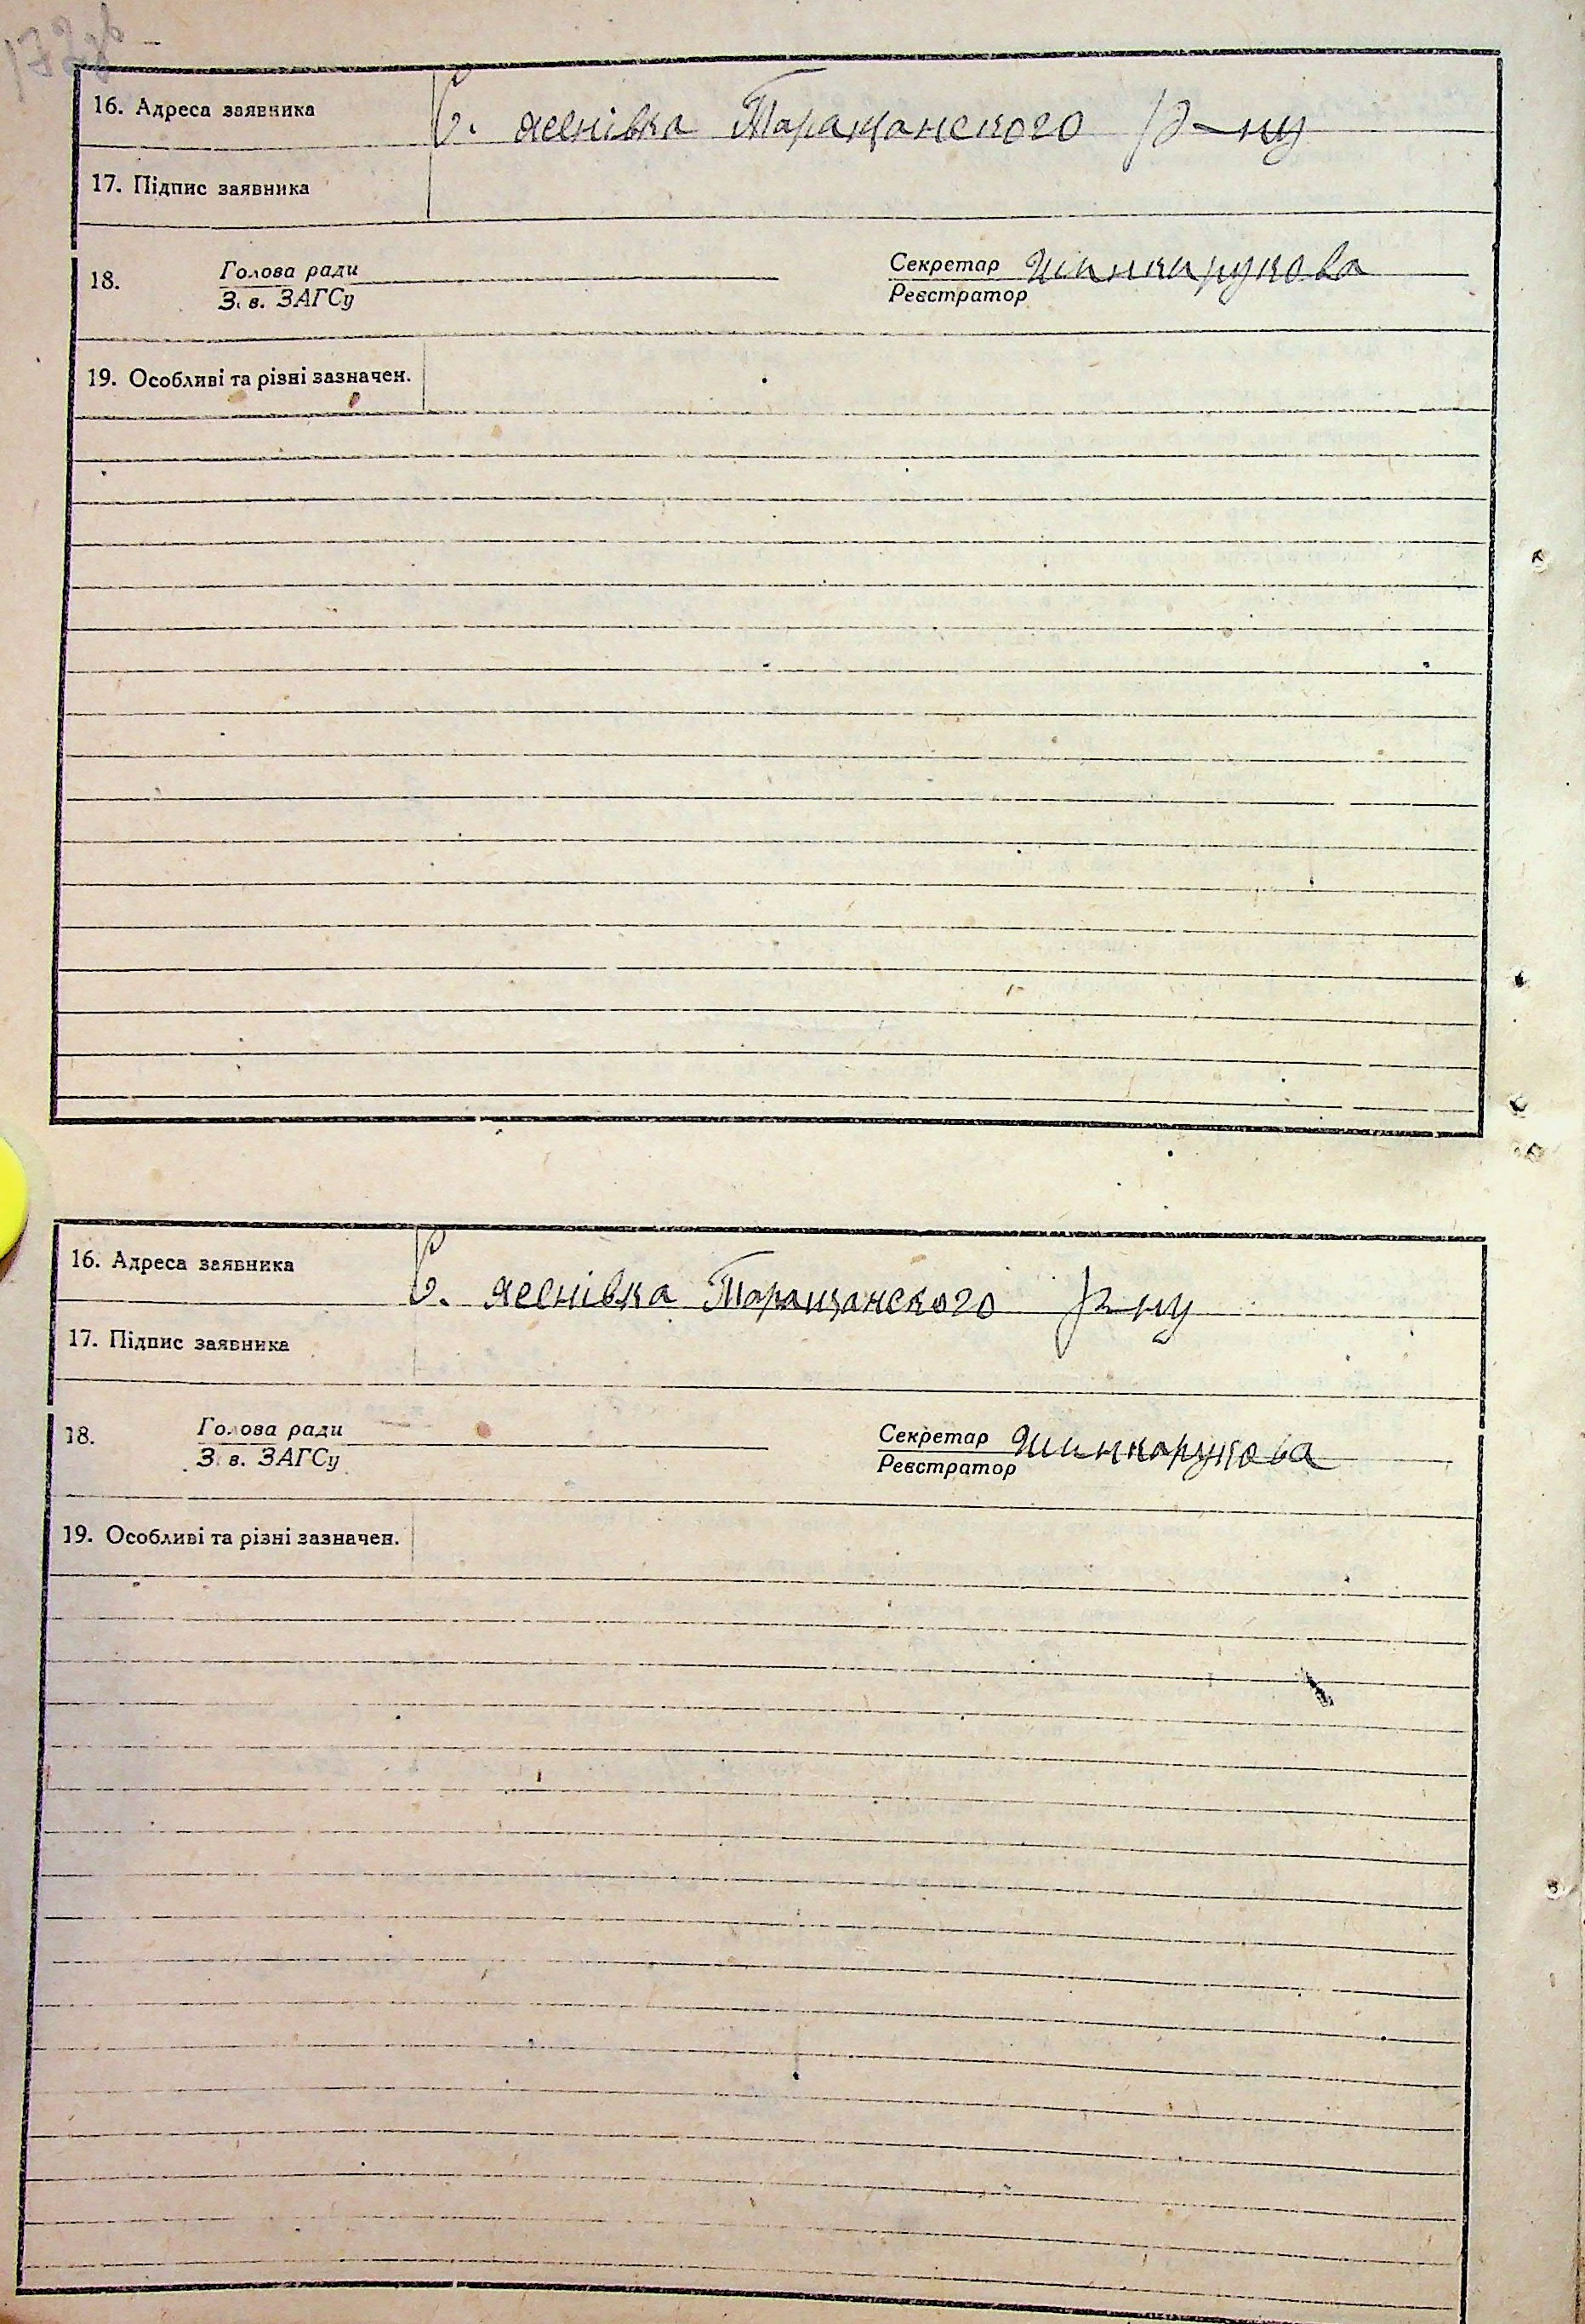 16. Адреса заявника С. яснівка Таращанского р-ну
17. Підпис заявника
18. Голова ради Секретар Шинкарукова
З. в. ЗАГСу Реєстратор
19. Особливі та різні зазначен.
16. Адреса заявника С. яснівка Таращанского р-ну
17. Підпис заявника
18. Голова ради Секретар Шинкарукова
З. в. ЗАГСу Реєстратор
19. Особливі та різні зазначен.